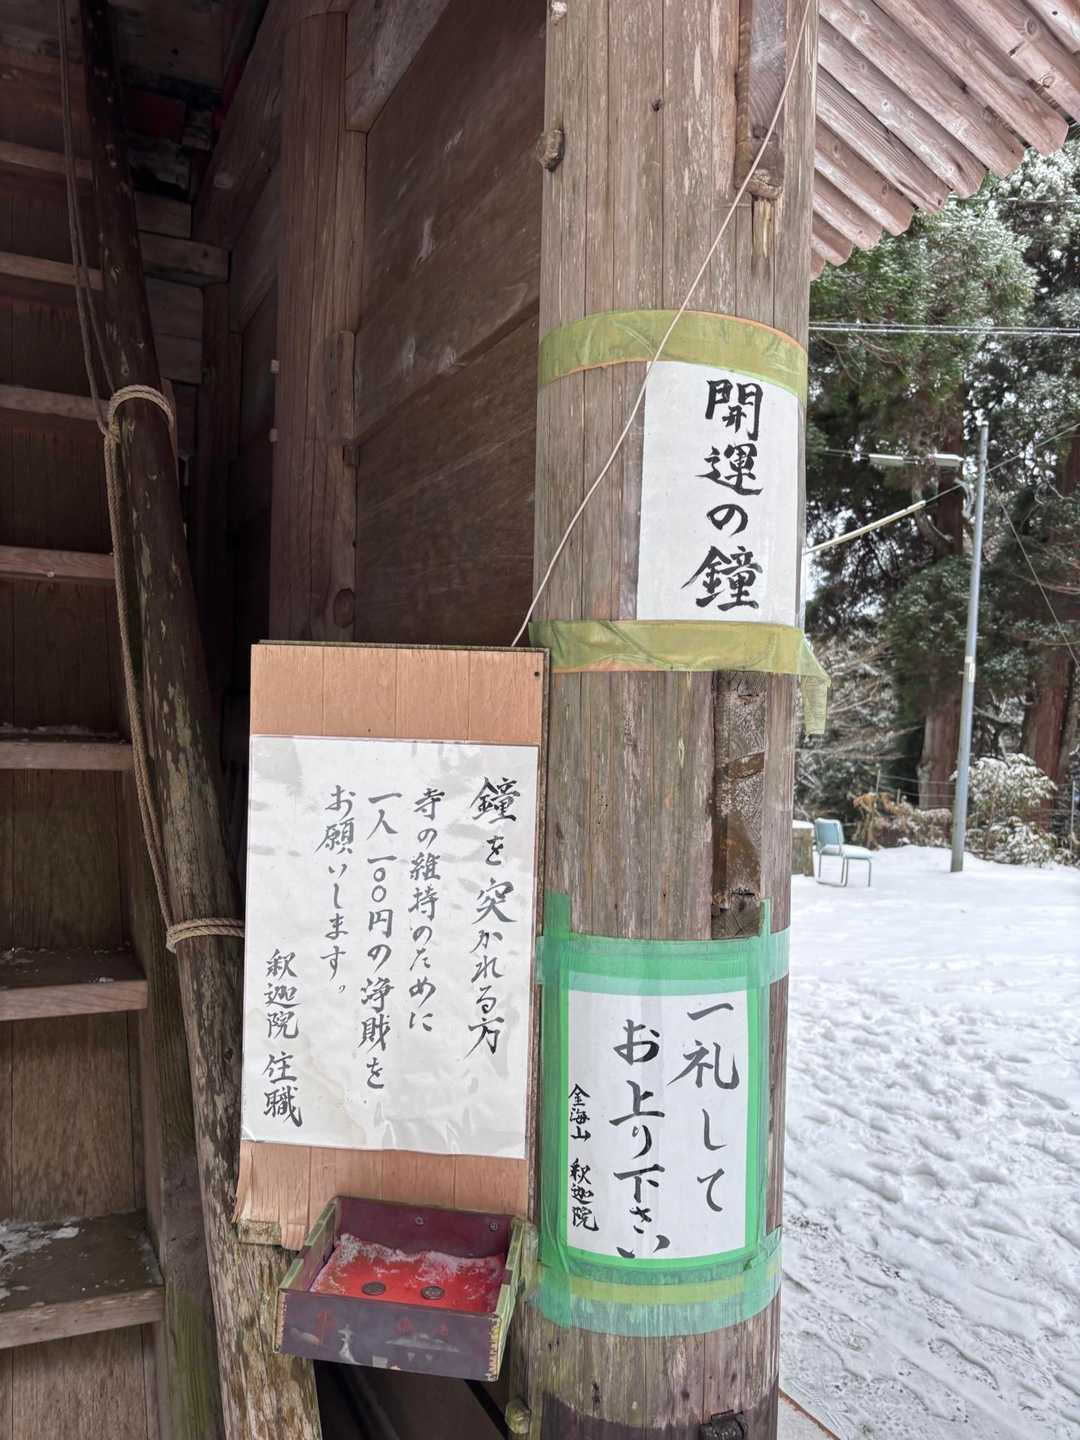 開運の鐘
鐘を突かれる方
寺の維持のために
一人一〇〇円の浄賎を
お願いします。
釈迦院 住職
一礼して
お上り下さい
金海山 釈迦院